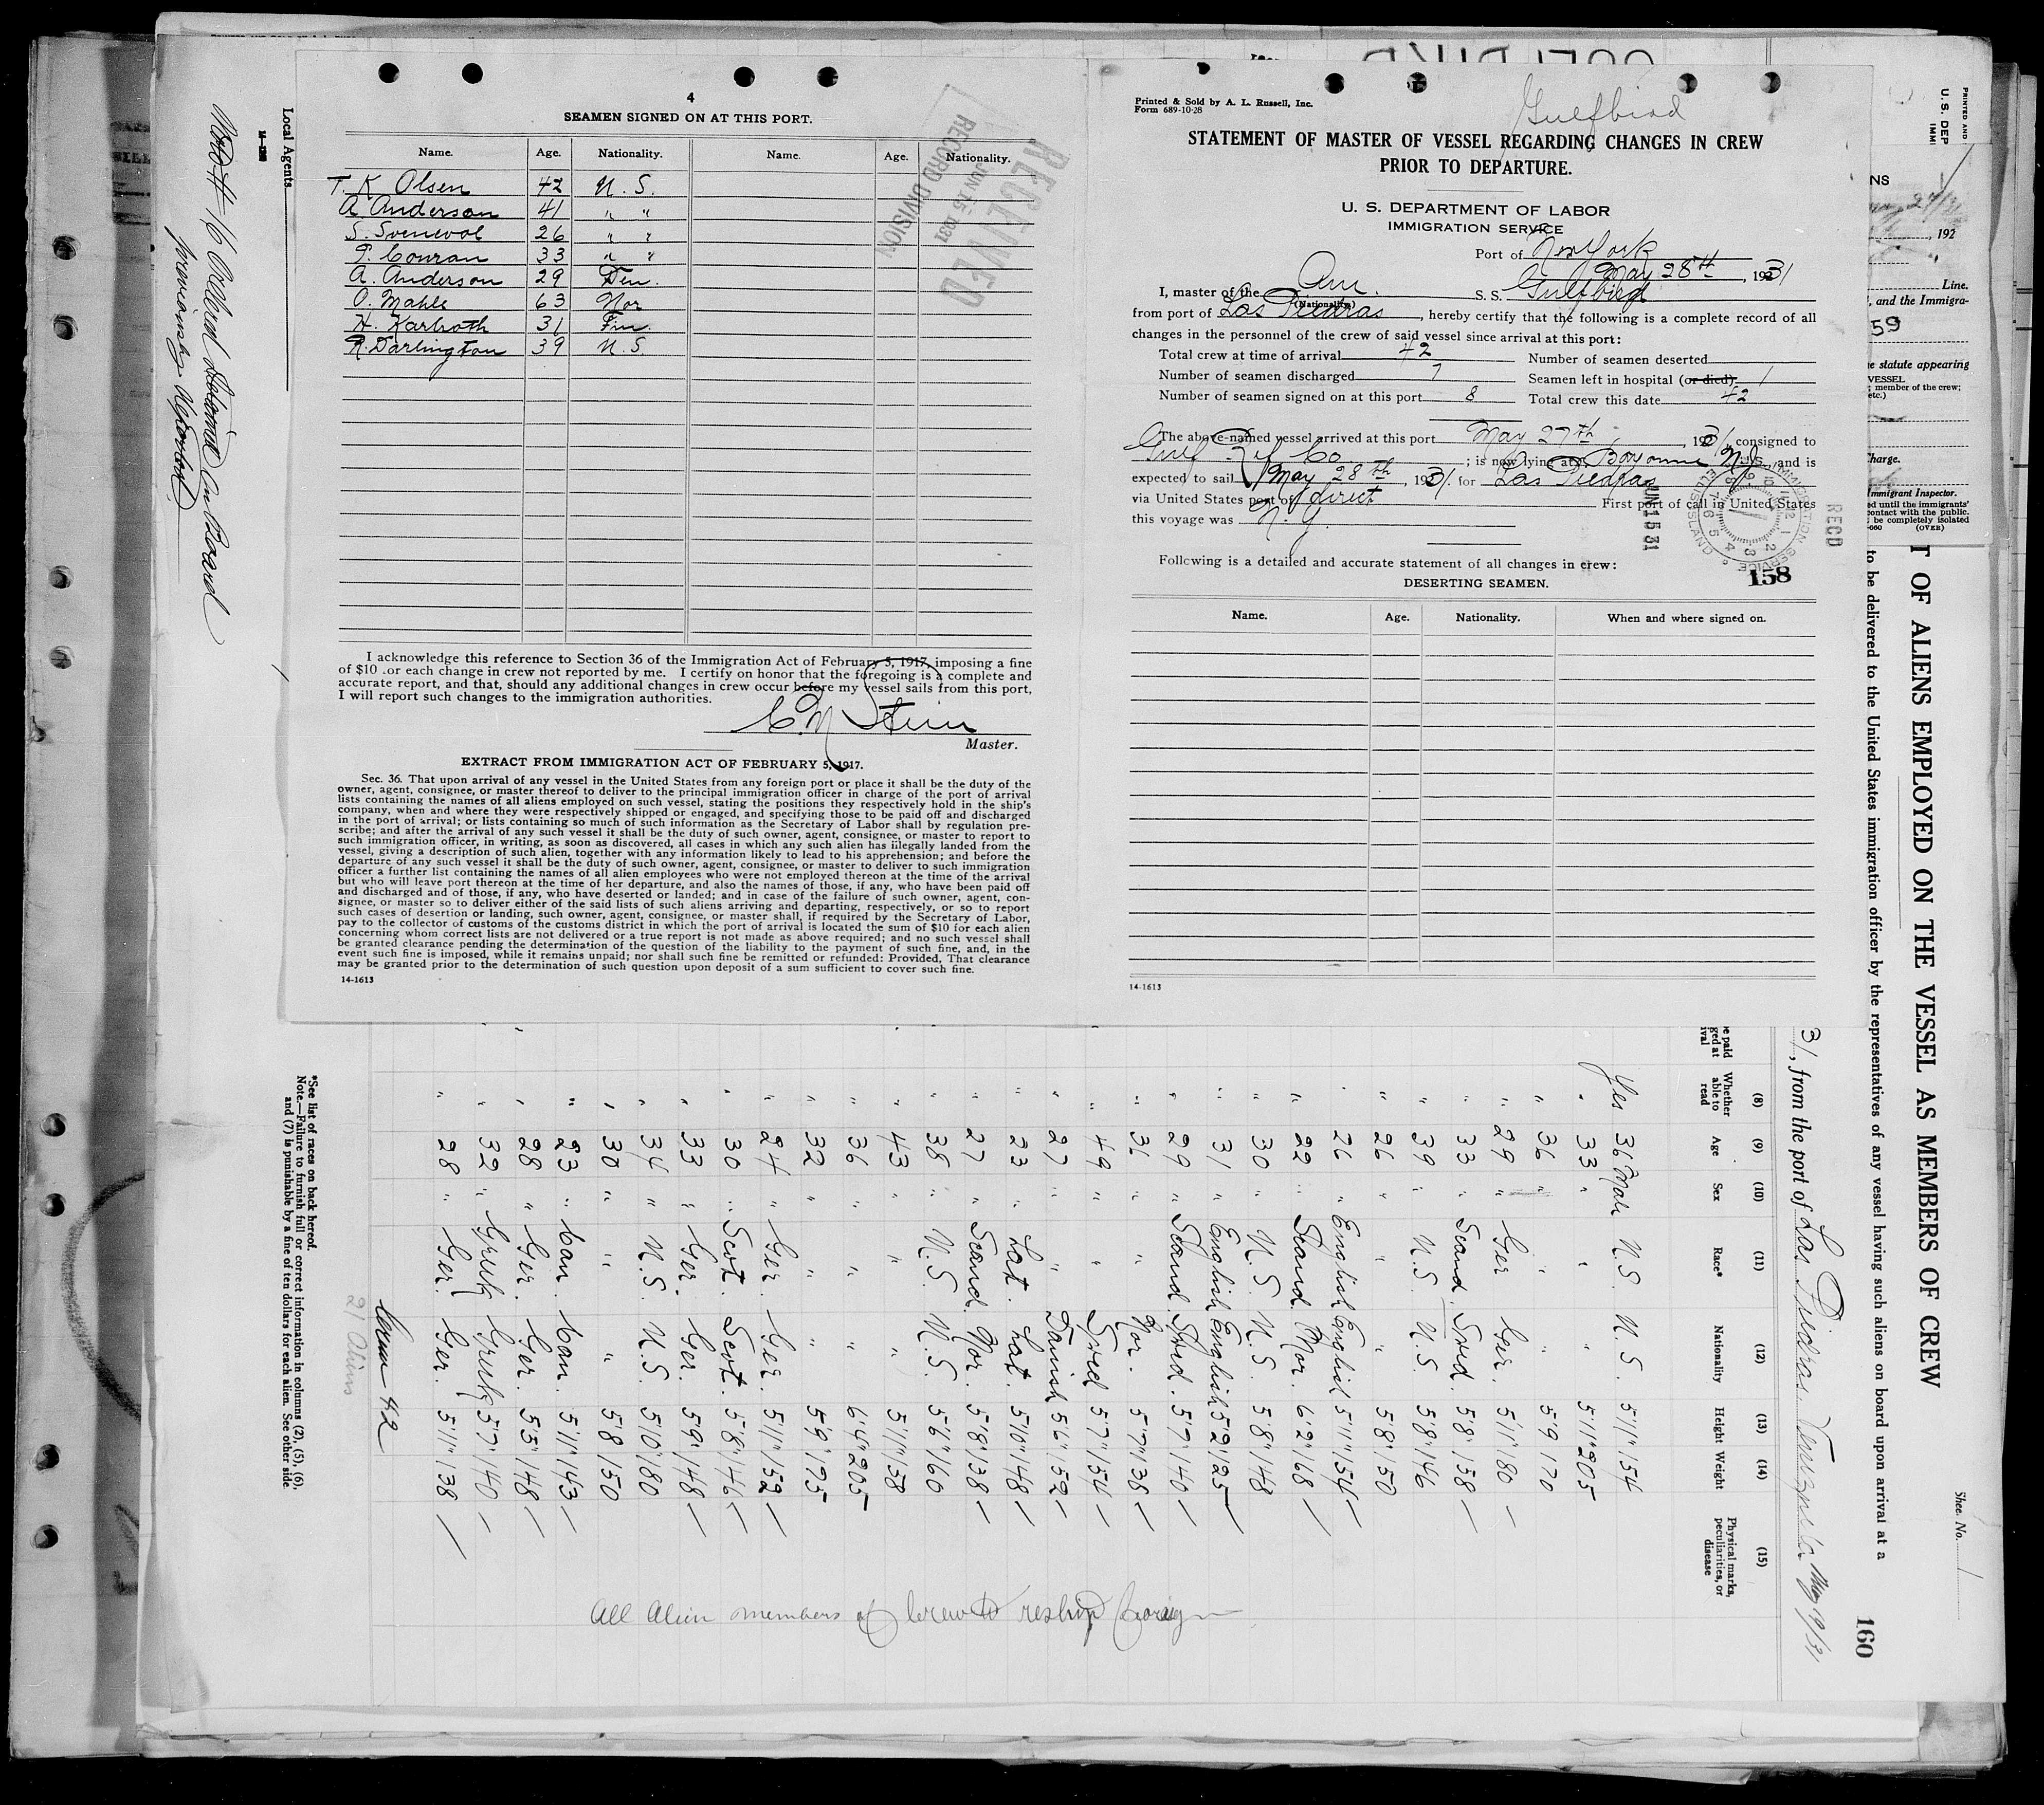 4
SEAMEN SIGNED ON AT THIS PORT.
Name. Age. Nationality. Name. Age. Nationality.
T. K Olsen 42 U. S.
A. Anderson 41 " "
S. Svenevol 26 " "
P. Conran 33 " "
A. Anderson 29 Den.
O. Mahle 63 Nor
H. Karlroth 31 Fin.
R. Darlington 39 U. S.
RECEIVED
JUN 15 1931
RECORD DIVISION
I acknowledge this reference to Section 36 of the Immigration Act of February 5, 1917, imposing a fine
of $10 .or each change in crew not reported by me. I certify on honor that the foregoing is a complete and
accurate report, and that, should any additional changes in crew occur before my vessel sails from this port,
I will report such changes to the immigration authorities.
Master.
EXTRACT FROM IMMIGRATION ACT OF FEBRUARY 5, 1917.
Sec. 36. That upon arrival of any vessel in the United States from any foreign port or place it shall be the duty of the
owner, agent, consignee, or master thereof to deliver to the principal immigration officer in charge of the port of arrival
lists containing the names of all aliens employed on such vessel, stating the positions they respectively hold in the ship's
company, when and where they were respectively shipped or engaged, and specifying those to be paid off and discharged
in the port of arrival; or lists containing so much of such information as the Secretary of Labor shall by regulation pre-
scribe; and after the arrival of any such vessel it shall be the duty of such owner, agent, consignee, or master to report to
such immigration officer, in writing, as soon as discovered, all cases in which any such alien has illegally landed from the
vessel, giving a description of such alien, together with any information likely to lead to his apprehension; and before the
departure of any such vessel it shall be the duty of such owner, agent, consignee, or master to deliver to such immigration
officer a further list containing the names of all alien employees who were not employed thereon at the time of the arrival
but who will leave port thereon at the time of her departure, and also the names of those, if any, who have been paid off
and discharged and of those, if any, who have deserted or landed; and in case of the failure of such owner, agent, con-
signee, or master so to deliver either of the said lists of such aliens arriving and departing, respectively, or so to report
such cases of desertion or landing, such owner, agent, consignee, or master shall, if required by the Secretary of Labor,
pay to the collector of customs of the customs district in which the port of arrival is located the sum of $10 for each alien
concerning whom correct lists are not delivered or a true report is not made as above required; and no such vessel shall
be granted clearance pending the determination of the question of the liability to the payment of such fine, and, in the
event such fine is imposed, while it remains unpaid; nor shall such fine be remitted or refunded: Provided, That clearance
may be granted prior to the determination of such question upon deposit of a sum sufficient to cover such fine.
14-1613
Printed & Sold by A. L. Russell, Inc.
Form 689-10-28
Gulfbird
STATEMENT OF MASTER OF VESSEL REGARDING CHANGES IN CREW
PRIOR TO DEPARTURE.
U. S. DEPARTMENT OF LABOR
IMMIGRATION SERVICE
Port of New York
May 28th, 1931
I, master of the Am. S. S. Gulfbird
(Nationality)
from port of Las Piedras, hereby certify that the following is a complete record of all
changes in the personnel of the crew of said vessel since arrival at this port:
Total crew at time of arrival 42 Number of seamen deserted
Number of seamen discharged 7 Seamen left in hospital (or died) 1
Number of seamen signed on at this port 8 Total crew this date 42
The above-named vessel arrived at this port May 27th, 1931, consigned to
Gulf Ref Co. ; is now lying at Bayonne N.J., and is
expected to sail May 28th, 1931 for Las Piedras
via United States port of direct First port of call in United States
this voyage was N. Y.
Following is a detailed and accurate statement of all changes in crew:
JUN 15 31
IMMIGRATION SERVICE
ELLIS ISLAND
REC'D
158
DESERTING SEAMEN.
Name. Age. Nationality. When and where signed on.
14-1613
Local Agents
T OF ALIENS EMPLOYED ON THE VESSEL AS MEMBERS OF CREW
to be delivered to the United States immigration officer by the representatives of any vessel having such aliens on board upon arrival at a
31, from the port of Las Piedras. Venezuela May 19/31
160
(8) Whether able to read (9) Age (10) Sex (11) Race* (12) Nationality (13) Height (14) Weight (15) Physical marks, peculiarities, or disease
Yes 36 Male U.S. U.S. 5'11" 154
" 33 " " " 5'11" 205
" 36 " " " 5'9 170
" 29 " Ger Ger. 5'11" 180
" 33 " Scand. Swed. 5'8" 158
" 39 " U.S. U.S. 5'8" 146
" 26 " " " 5'8" 150
" 26 " English English 5'11" 154
" 22 " Scand. Nor. 6'2" 168
" 30 " U.S. U.S. 5'8" 148
" 31 " English English 5'2" 125
" 29 " Scand. Swed. 5'7" 140
" 36 " " Nor. 5'7" 138
" 49 " " Swed 5'7" 154
" 27 " " Danish 5'6" 152
" 23 " Lat. Lat. 5'10" 148
" 27 " Scand. Nor. 5'8" 138
" 38 " U.S. U.S. 5'6" 160
" 43 " " " 5'11" 158
" 36 " " " 6'4" 205
" 32 " " " 5'9" 195
" 24 " Ger. Ger. 5'11" 152
" 30 " Scot. Scot. 5'8" 146
" 33 " Ger. Ger. 5'9" 148
" 34 " U.S. U.S. 5'10" 180
" 30 " " " 5'8 150
" 23 " Can. Can. 5'11" 143
" 28 " Ger. Ger. 5'5" 148
" 32 " Greek Greek 5'7" 140
" 28 " Ger. Ger. 5'11" 138
42
21 Aliens
All Alien members of Crew to reship foreign
*See list of races on back hereof.
Note.—Failure to furnish full or correct information in columns (2), (5), (6),
and (7) is punishable by a fine of ten dollars for each alien. See other side